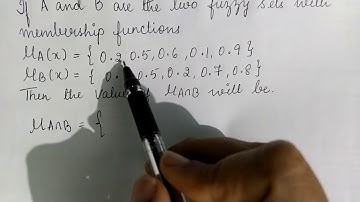 If A and B are the two fuzzy sets with
membership functions
μA(x) = { 0.2, 0.5, 0.6, 0.1, 0.9 }
μB(x) = { 0.5, 0.2, 0.7, 0.8 }
Then the value μA∩B will be.
μA∩B = {